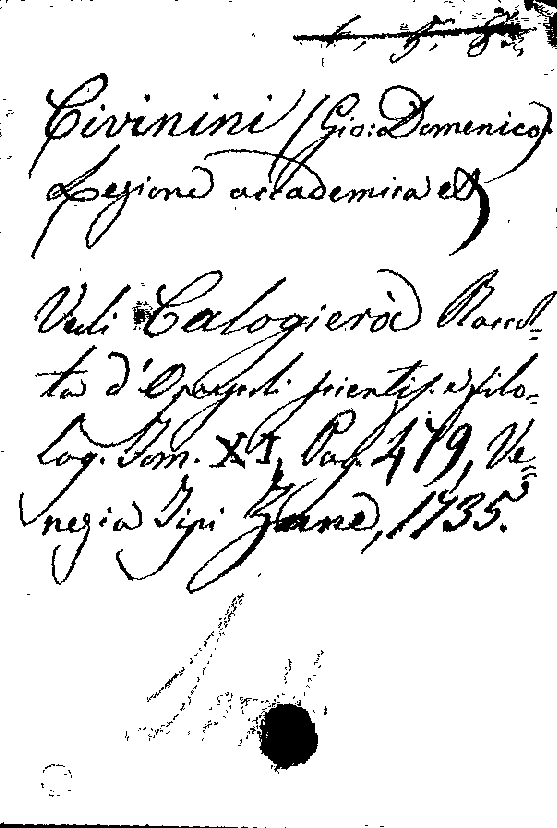 Civinini (Gio: Domenico)
Lezione accademica etc
Vedi Calogierà Raccol=
ta d'Opuscoli scientif. e filo=
log. Tom. XI, Pag. 479, Ve=
nezia Tipi Zane, 1735.